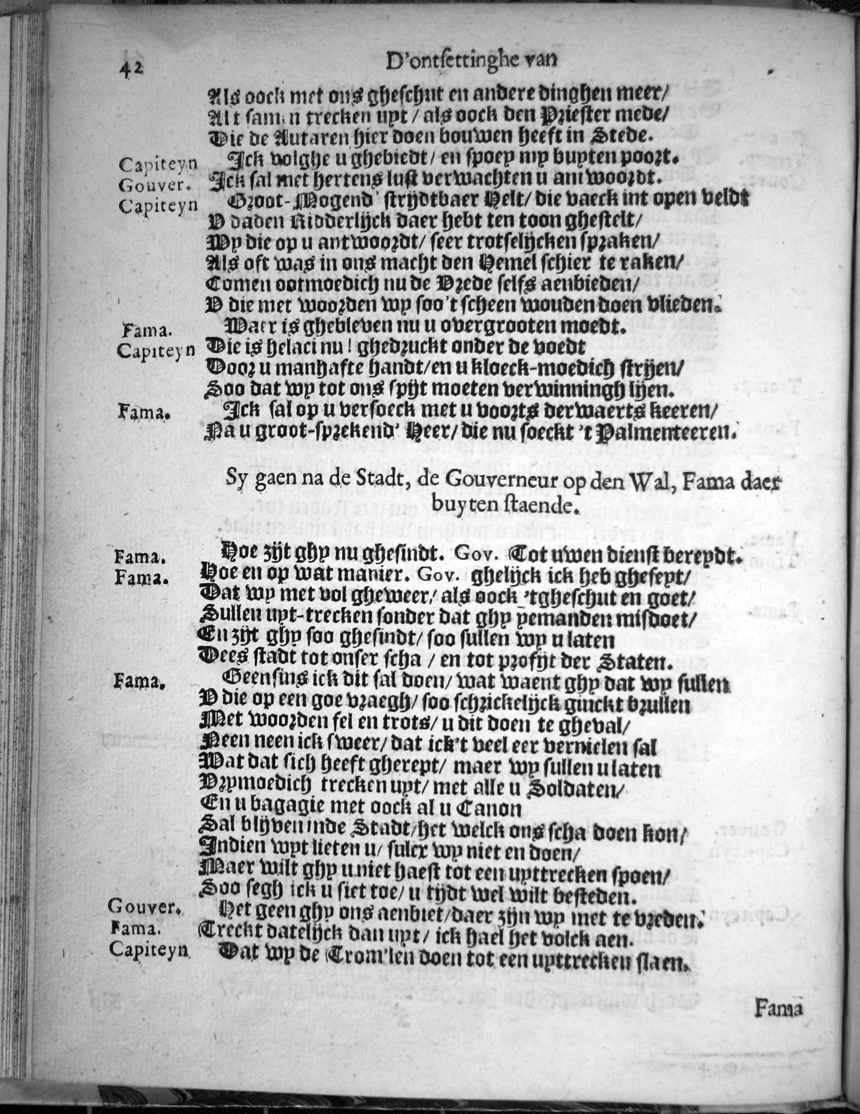 42 D'ontsettinghe van
Als oock met ons gheschut en andere dinghen meer/
Al t samen trecken uyt / als oock den Priester mede/
Die de Autaren hier doen bouwen heeft in Stede.
Capiteyn Ick volghe u ghebiedt/ en spoey my buyten poort.
Gouver. Ick sal met hertens lust verwachten u antwoordt.
Capiteyn Groot-Mogend' strijdtbaer Helt/ die vaeck int open veldt
V daden Ridderlijck daer hebt ten toon ghestelt/
Wy die op u antwoordt/ seer trotselijcken spraken/
Als oft was in ons macht den Hemel schier te raken/
Comen ootmoedich nu de Vrede selfs aenbieden/
V die met woorden wy soo't scheen wouden doen vlieden.
Fama. Waer is ghebleven nu u overgrooten moedt.
Capiteyn Die is helaci nu! ghedruckt onder de voedt
Door u manhafte handt/en u kloeck-moedich strijen/
Soo dat wy tot ons spijt moeten verwinningh lijen.
Fama. Ick sal op u versoeck met u voorts derwaerts keeren/
Na u groot-sprekend' Heer/ die nu soeckt 't Palmenteeren.
Sy gaen na de Stadt, de Gouverneur op den Wal, Fama daer
buyten staende.
Fama. Hoe zijt ghy nu ghesindt. Gov. Tot uwen dienst bereydt.
Fama. Hoe en op wat manier. Gov. ghelijck ick heb gheseyt/
Dat wy met vol gheweer/ als oock 'tgheschut en goet/
Sullen uyt-trecken sonder dat ghy yemanden misdoet/
En zijt ghy soo ghesindt/ soo sullen wy u laten
Dees stadt tot onser scha / en tot profijt der Staten.
Fama. Geensins ick dit sal doen/ wat waent ghy dat wy sullen
V die op een goe vraegh/ soo schrickelijck ginckt brullen
Met woorden fel en trots/ u dit doen te gheval/
Neen neen ick sweer/ dat ick't veel eer vernielen sal
Wat dat sich heeft gherept/ maer wy sullen u laten
Vrymoedich trecken uyt/ met alle u Soldaten/
En u bagagie met oock al u Canon
Sal blijven inde Stadt/het welck ons scha doen kon/
Indien wyt lieten u/ sulcx wy niet en doen/
Maer wilt ghy u niet haest tot een uyttrecken spoen/
Soo segh ick u siet toe/ u tijdt wel wilt besteden.
Gouver. Het geen ghy ons aenbiet/daer zijn wy met te vreden.
Fama. Treckt datelijck dan uyt/ ick hael het volck aen.
Capiteyn Dat wy de Trom'len doen tot een uyttrecken slaen.
Fama